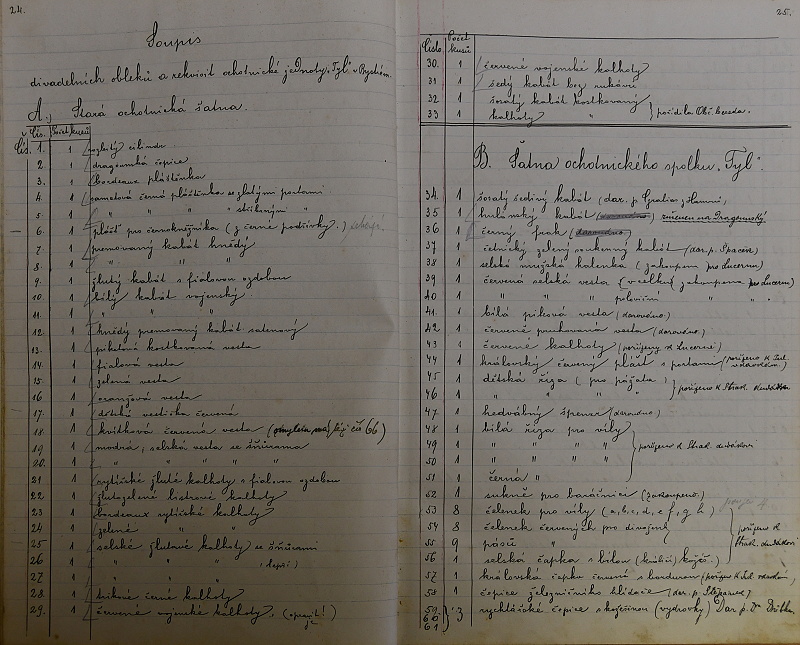 24.
Soupis
divadelních obleků a rekvisit ochotnické jednoty „Tyl" v Bystrém.
A.) Stará ochotnická šatna.
Čís. Počet kusů
1. 1 vysoký cilindr
2. 1 dragounská čepice
3. 1 Bordeaux pláštěnka
4. 1 sametová černá pláštěnka se zlatými portami
5. 1 " " " stříbrnými "
6. 1 plášť pro černokněžníka (z černé podšívky.)
7. 1 premovaný kabát hnědý
8. 1 " " "
9. 1 žlutý kabát s fialovou ozdobou
10. 1 bílý kabát vojenský.
11. 1 " " "
12. 1 hnědý premovaný kabát satenový
13. 1 piketová kostkovaná vesta
14. 1 fialová vesta
15. 1 zelená vesta
16. 1 oranžová vesta
17. 1 dětská vestička červená
18. 1 kvítková červená vesta čís 66)
19. 1 modrá, selská vesta se šňůrami
20. 1 " " " "
21 1 rytířské žluté kalhoty s fialovou ozdobou
22 1 žlutozelené listrové kalhoty
23 1 bordeaux rytířské kalhoty
24 1 zelené " "
25 1 selské žlutové kalhoty se šňůrami
26 1 " " " (lepší)
27 1 " " "
28. 1 trikové černé kalhoty
29. 1 červené vojenské kalhoty. (opravit!)
25.
Číslo. Počet kusů
30. 1 červené vojenské kalhoty
31 1 šedý kabát bez rukávů
32 1 šosatý kabát kostkovaný
33 1 kalhoty " pořídila Obč. beseda.
B. Šatna ochotnického spolku „Tyl".
34. 1 šosatý šedivý kabát (dar. p.
35 1 hulánský kabát (darováno) změněn na Dragounský
36 1 černý frak (darováno)
37 1 četnický zelený soukenný kabát (dar. p. Spacír)
38 1 selská mužská halenka (zakoupena pro Lucernu)
39 1 červená selská vesta (vcelku) zakoupena pro Lucernu)
40 1 " " " poloviční " " "
41. 1 bílá piková vesta (darováno)
42 1 červeně puntovaná vesta (darováno.)
43 1 červené kalhoty (pořízeny k Lucerně)
44 1 královský červený plášť s portami (pořízeno k Jul.
45 1 dětská říza (pro pážata)
46 1 " " " " pořízeno k Strak. dudákovi
47. 1 hedvábný špensr (darováno)
48 1 bílá říza pro víly
49 1 " " " " pořízeno k Strak. dudákovi
50 1 " " " "
51 1 černá "
52 1 sukně pro baráčnici (zakoupeno.)
53 8 čelenek pro víly (a, b, c, d, e, f, g, h)
54 8 čelenek červených pro divoženky pořízeno k
55 9 pásů " Strak. dudákovi
56 1 selská čapka s bílou (králičí) kožíš.)
57 1 královská čapka červená s bordurou (pořízena k Jul.
58 1 čepice železničního hlídače (dar. p. Štěpánek)
59 60 61 3 rychtářské čepice s kožešinou (vydrovky) Dar p. Dr